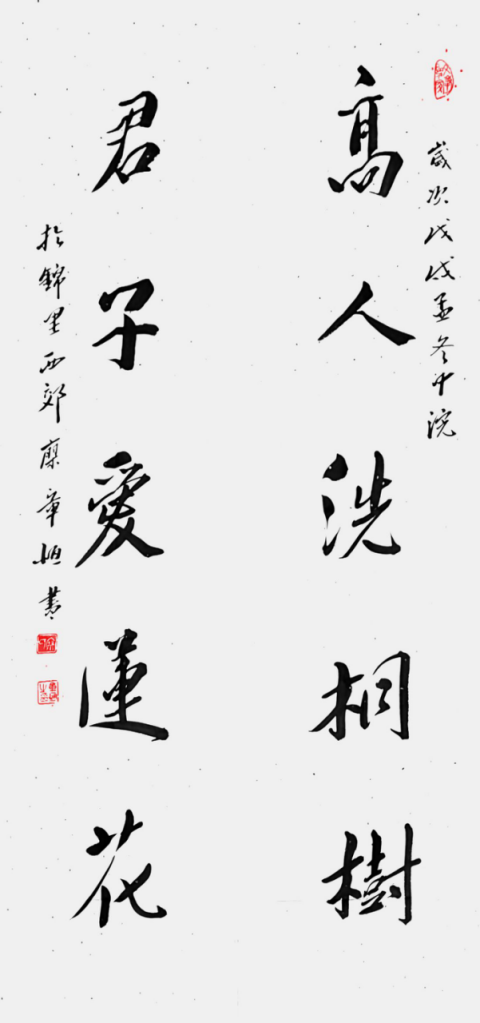 歲次戊戌孟冬中浣
高人洗桐樹
君子愛蓮花
於錦里西郊廖章恒書